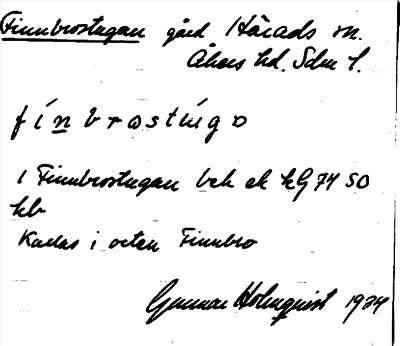 Finnbrostugan gård Härads sn.
Åkers hd. Sdm l.
fín brostúgo
I Finnbrostugan beb ek kG 74 50
hb
Kallas i orten Finnbro
Gunnar Holmquist 1934